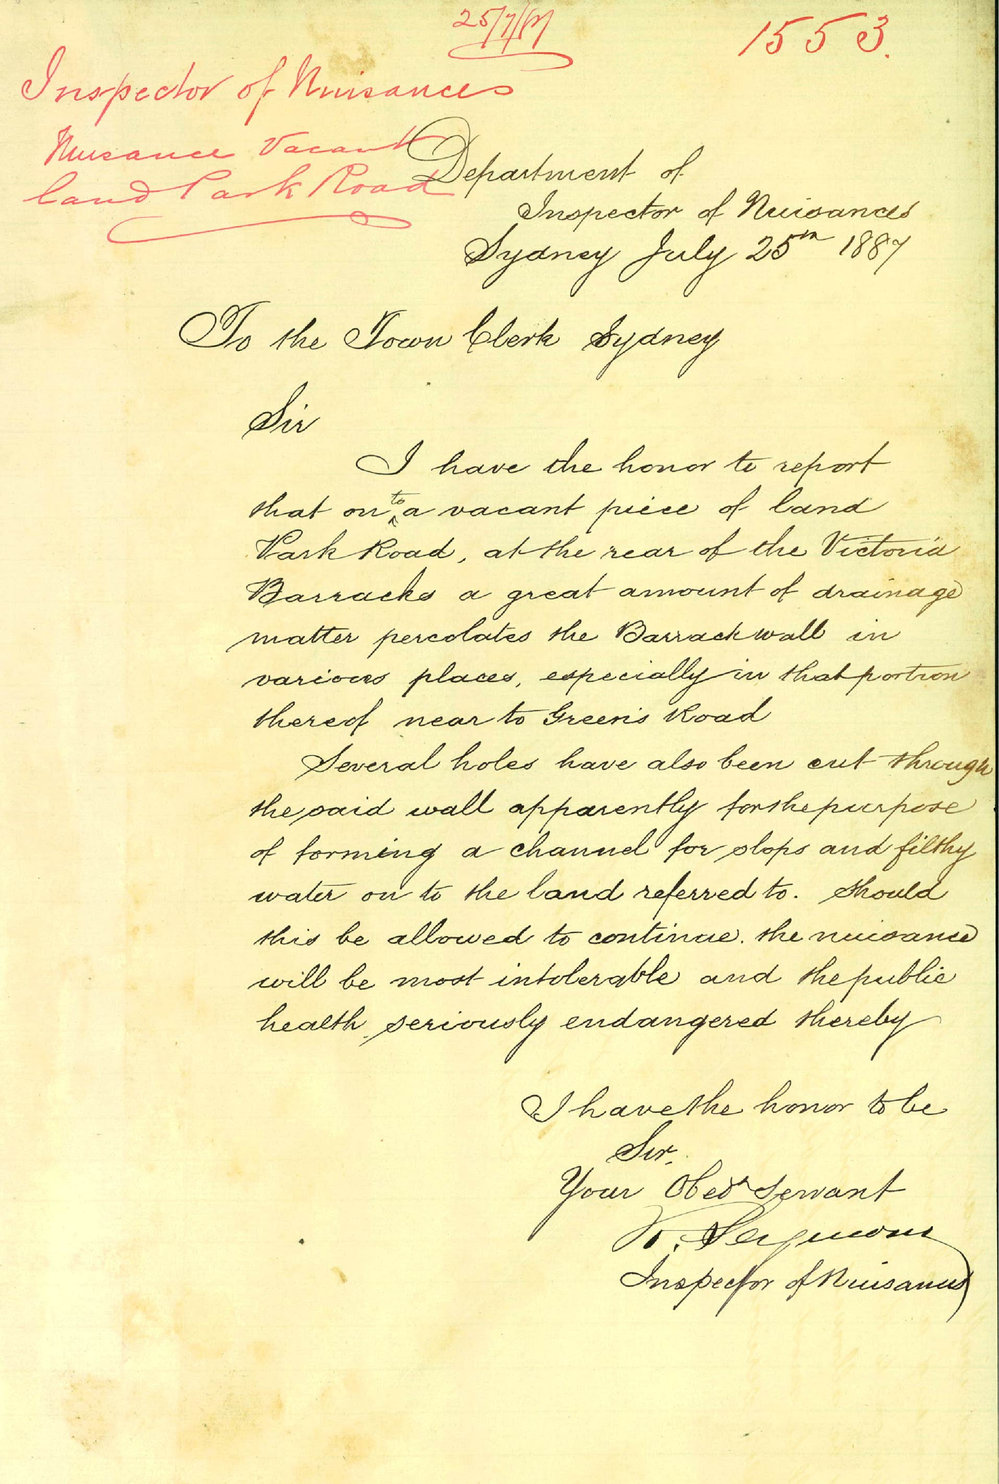 25/7/87
1553.
Inspector of Nuisances
Nuisance Vacant
land Park Road
Department of
Inspector of Nuisances
Sydney July 25th 1887
To the Town Clerk Sydney
Sir
I have the honor to report
that on to a vacant piece of land
Park Road, at the rear of the Victoria
Barracks a great amount of drainage
matter percolates the Barrack wall in
various places, especially in that portion
thereof near to Green's Road
Several holes have also been cut through
the said wall apparently for the purpose
of forming a channel for slops and filthy
water on to the land referred to. Should
this be allowed to continue. the nuisance
will be most intolerable and the public
health seriously endangered thereby
I have the honor to be
Sir.
Your Obedt Servant
Inspector of Nuisances